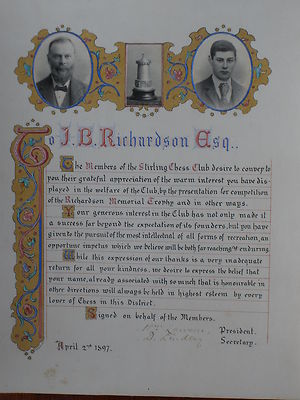 To J.B. Richardson Esq.,
The Members of the Stirling Chess Club desire to convey to
you their grateful appreciation of the warm interest you have dis-
played in the welfare of the Club, by the presentation for competition
of the Richardson Memorial Trophy and in other ways.
Your generous interest in the Club has not only made it
a success far beyond the expectation of its founders, but you have
given to the pursuit of the most intellectual of all forms of recreation, an
opportune impetus which we believe will be both far reaching & enduring.
While this expression of our thanks is a very inadequate
return for all your kindness, we desire to express the belief that
your name, already associated with so much that is honourable in
other directions will always be held in highest esteem by every
lover of Chess in this District.
Signed on behalf of the Members.
President.
Secretary.
April 2nd 1897.